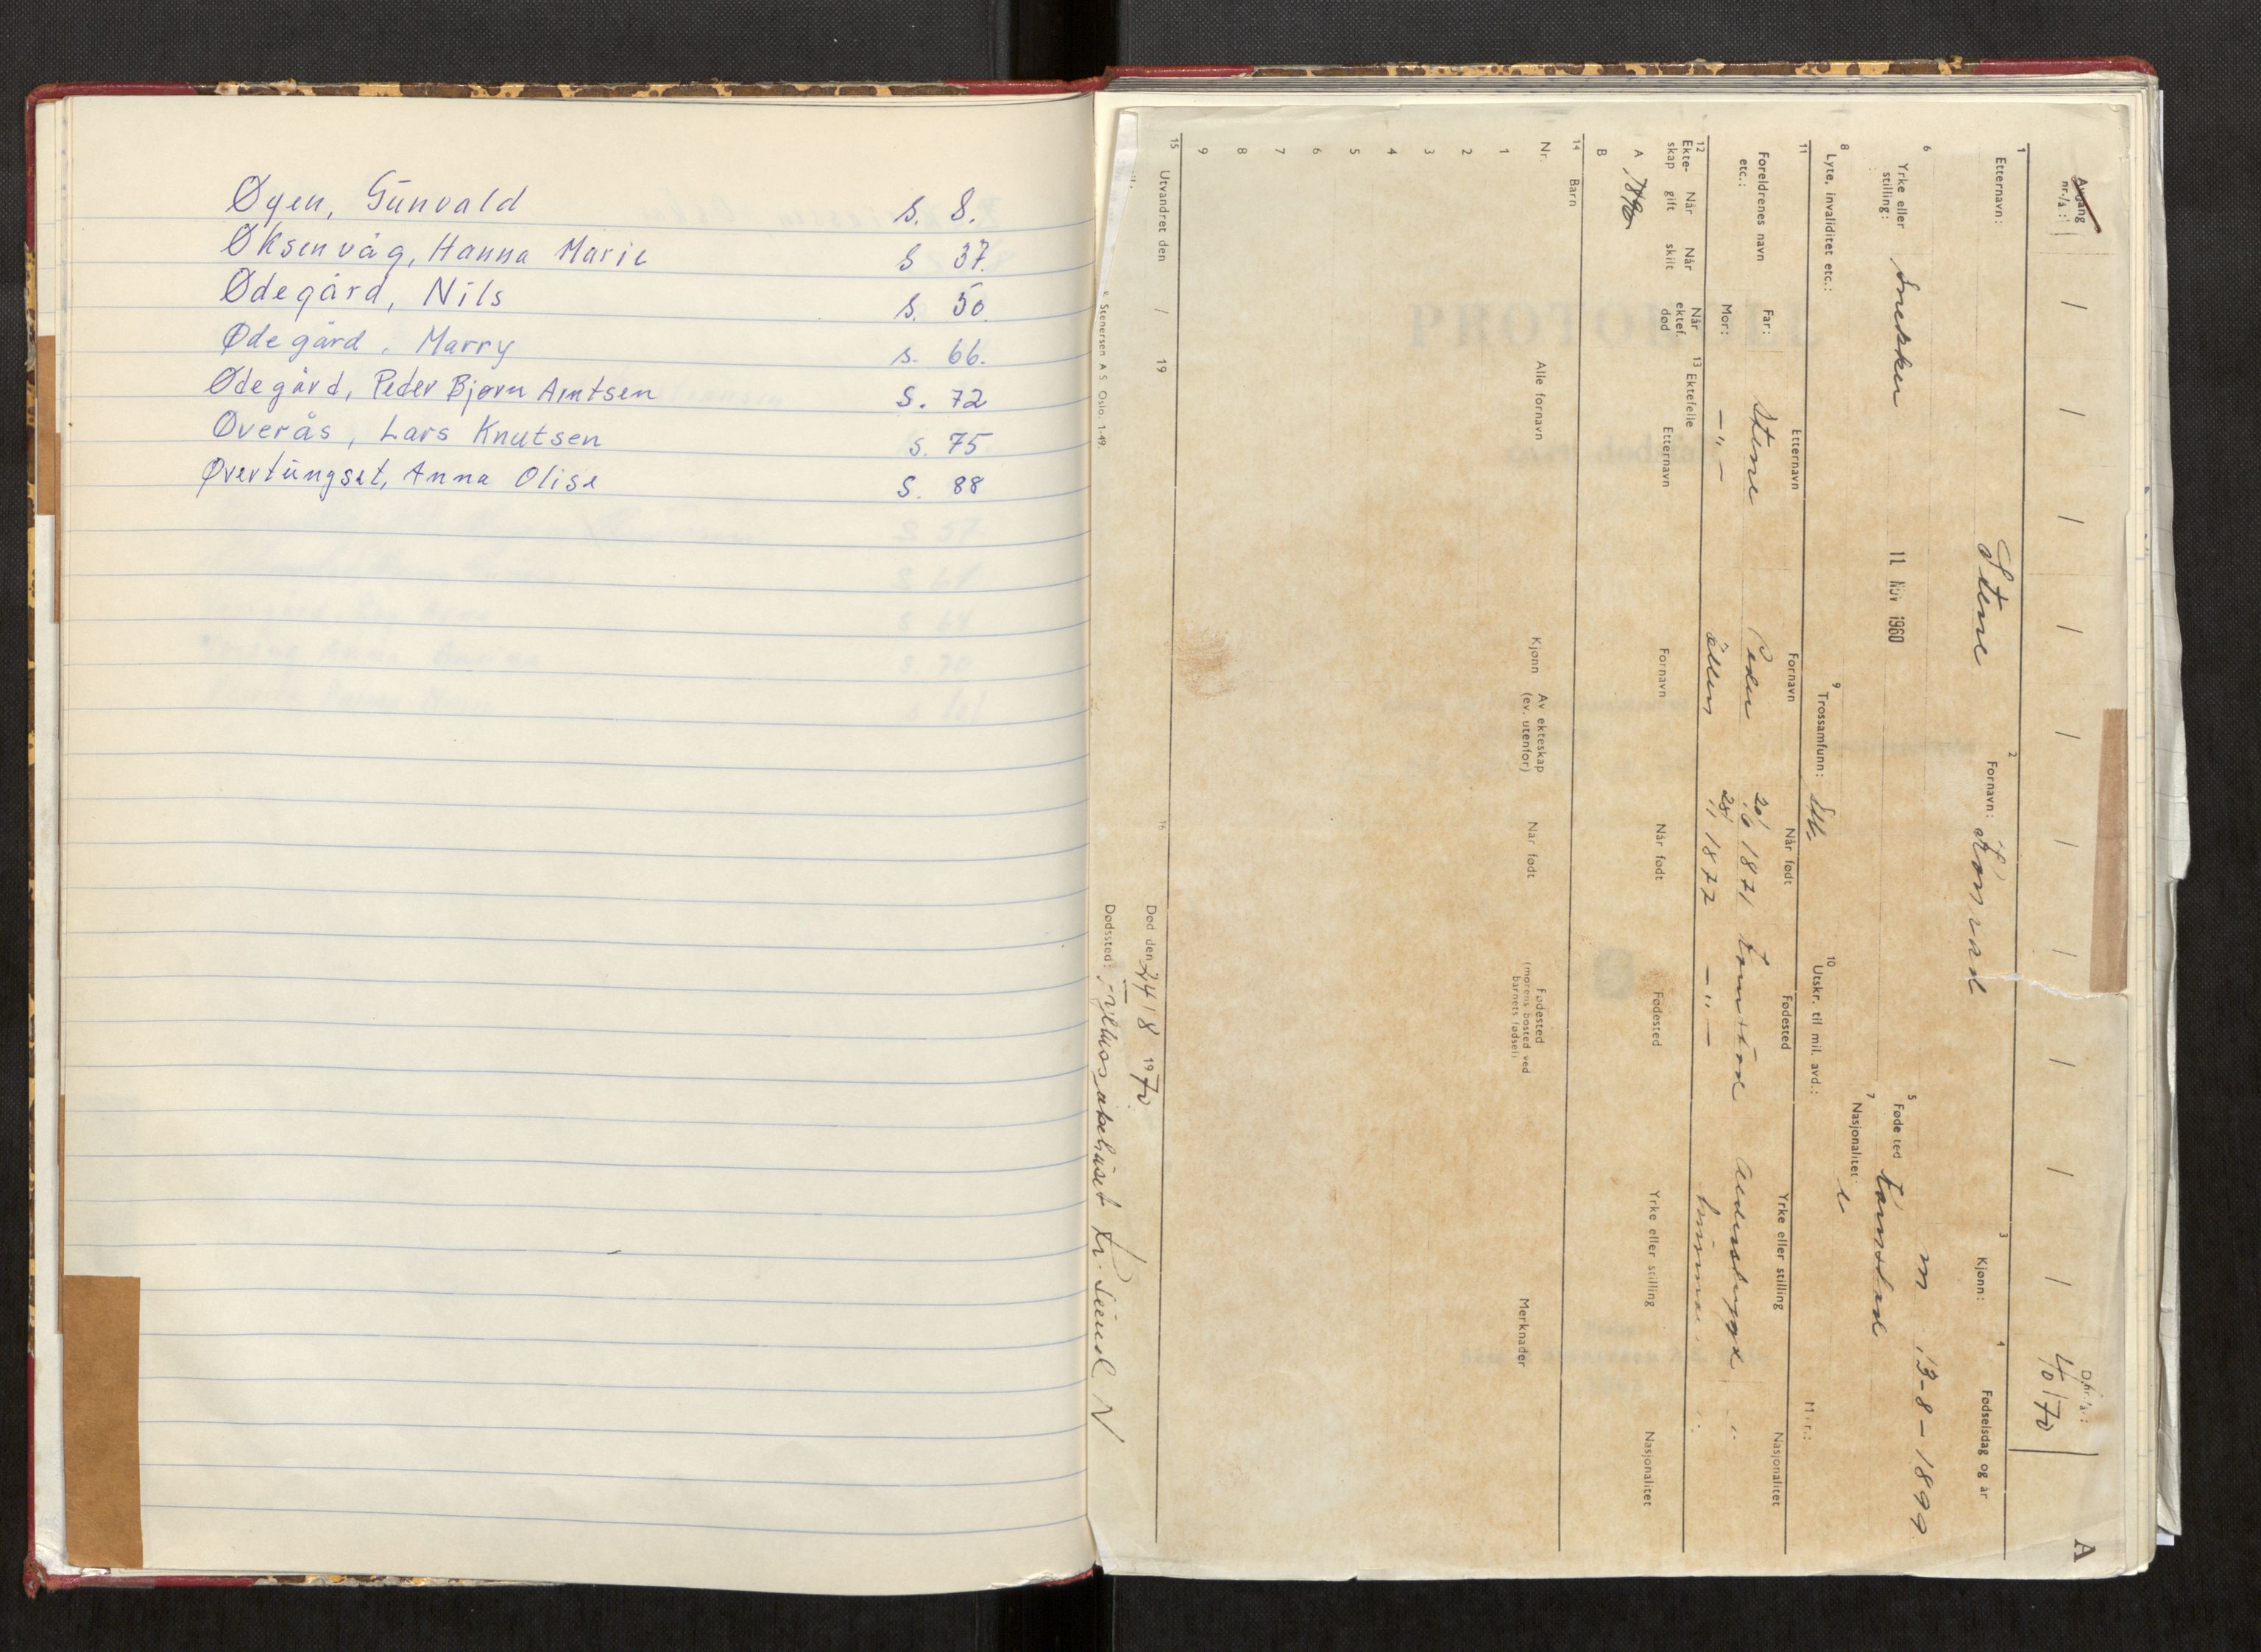 Øyen, Gunvald s. 8.
Øksenvåg, Hanna Marie s 37.
Ødegård, Nils s. 50.
Ødegård, Marry s. 66.
Ødegård, Peder Bjørn Arntsen s. 72
Øverås, Lars Knutsen s. 75.
Øvertungset, Anna Olise s. 88
A
Avgang nr./å.: D.nr./å.: 40/70
1 Etternavn: Stene 2 Fornavn: Konrad 3 Kjønn: m 4 Fødselsdag og år 13-8-1899
5 Fødested
6 Yrke eller stilling: Snekker 11 NOV 1960
7 Nasjonalitet
8 Lyte, invaliditet etc.: 9 Trossamfunn: 10 Utskr. til mil. avd.:
11 Foreldrenes navn etc.: Etternavn Fornavn Når født Fødested Yrke eller stilling Nasjonalitet
Far: Stene Peder 20/6 1871
Mor: -"- 1877 -"-
12 Ekteskap Når gift Når skilt Når ektef. død 13 Ektefelle Etternavn Fornavn Når født Fødested Yrke eller stilling Nasjonalitet
A
B
14 Barn
Nr. Alle fornavn Kjønn Av ekteskap (ev. utenfor) Når født Fødested (morens bosted ved barnets fødsel) Merknader
1
2
3
4
5
6
7
8
9
15 Utvandret den / 19 16 Død den 24/8 1970
Dødssted: Fylkessjukehuset Kr.sund N
Stenersen A S Oslo. 1-49.